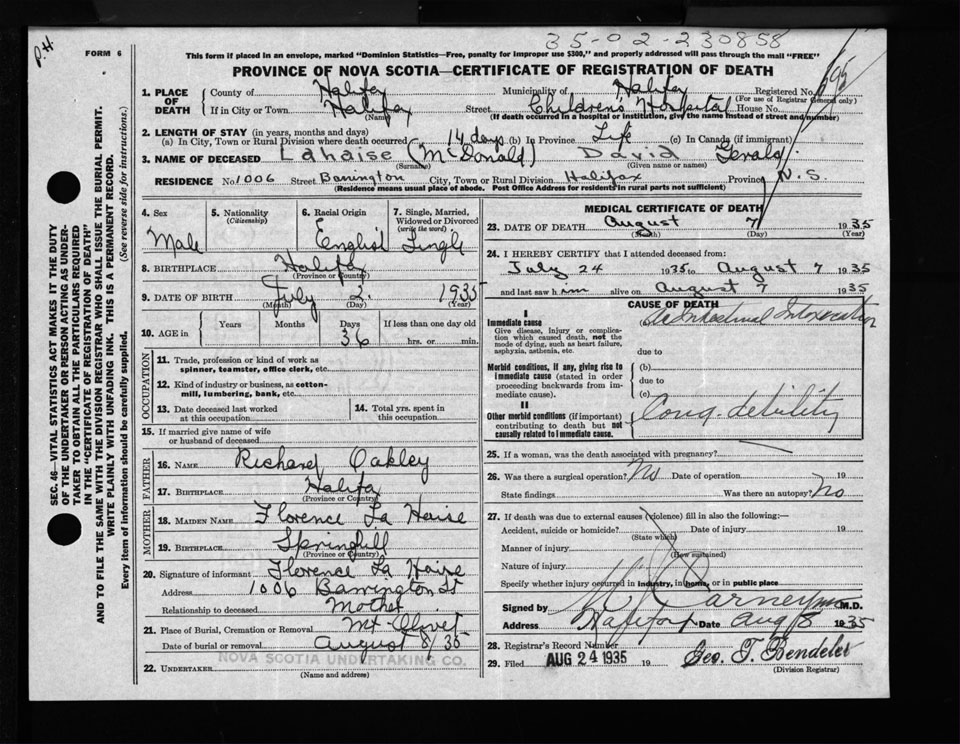 35-02-230858
P.H.
FORM 6
This form if placed in an envelope, marked "Dominion Statistics—Free, penalty for improper use $300," and properly addressed will pass through the mail "FREE"
PROVINCE OF NOVA SCOTIA—CERTIFICATE OF REGISTRATION OF DEATH
SEC. 46—VITAL STATISTICS ACT MAKES IT THE DUTY
OF THE UNDERTAKER OR PERSON ACTING AS UNDER-
TAKER TO OBTAIN ALL THE PARTICULARS REQUIRED
IN THE "CERTIFICATE OF REGISTRATION OF DEATH"
AND TO FILE THE SAME WITH THE DIVISION REGISTRAR WHO SHALL ISSUE THE BURIAL PERMIT.
WRITE PLAINLY WITH UNFADING INK. THIS IS A PERMANENT RECORD.
Every item of information should be carefully supplied. (See reverse side for instructions.)
1. PLACE OF DEATH
County of Halifax Municipality of Halifax Registered No. 695
(For use of Registrar General only)
If in City or Town Halifax Street Children's Hospital House No.
(Name) (If death occurred in a hospital or institution, give the name instead of street and number)
2. LENGTH OF STAY (in years, months and days)
(a) In City, Town or Rural Division where death occurred 14 days (b) In Province Life (c) In Canada (if immigrant)
3. NAME OF DECEASED Lahaise (McDonald) David Gerald
(Surname) (Given name or names)
RESIDENCE No. 1006 Street Barrington City, Town or Rural Division Halifax Province N.S.
(Residence means usual place of abode. Post Office Address for residents in rural parts not sufficient)
4. Sex
Male
5. Nationality
(Citizenship)
6. Racial Origin
English
7. Single, Married,
Widowed or Divorced
(write the word)
Single
8. BIRTHPLACE Halifax
(Province or Country)
9. DATE OF BIRTH July 2 1935
(Month) (Day) (Year)
10. AGE in Years Months Days If less than one day old
36 hrs. or min.
OCCUPATION
11. Trade, profession or kind of work as
spinner, teamster, office clerk, etc.
12. Kind of industry or business, as cotton-
mill, lumbering, bank, etc.
13. Date deceased last worked
at this occupation
14. Total yrs. spent in
this occupation
15. If married give name of wife
or husband of deceased
FATHER
16. NAME Richard Oakley
17. BIRTHPLACE Halifax
(Province or Country)
MOTHER
18. MAIDEN NAME Florence La Haise
19. BIRTHPLACE Springhill
(Province or Country)
20. Signature of informant Florence La Haise
Address 1006 Barrington St
Relationship to deceased Mother
21. Place of Burial, Cremation or Removal Mt Olivet
Date of burial or removal August 8/35
22. UNDERTAKER NOVA SCOTIA UNDERTAKING CO.
(Name and address)
MEDICAL CERTIFICATE OF DEATH
23. DATE OF DEATH August 7 1935
(Month) (Day) (Year)
24. I HEREBY CERTIFY that I attended deceased from:
July 24 1935 to August 7 1935
and last saw him alive on August 7 1935
CAUSE OF DEATH
I
Immediate cause
Give disease, injury or complica-
tion which caused death, not the
mode of dying, such as heart failure,
asphyxia, asthenia, etc.
(a) Intestinal Intoxication
due to
Morbid conditions, if any, giving rise to
immediate cause (stated in order
proceeding backwards from im-
mediate cause).
(b)
due to
(c)
II
Other morbid conditions (if important)
contributing to death but not
causally related to immediate cause.
Cong. debility
25. If a woman, was the death associated with pregnancy?
26. Was there a surgical operation? No Date of operation 19
State findings Was there an autopsy? No
27. If death was due to external causes (violence) fill in also the following:—
Accident, suicide or homicide? Date of injury 19
(State which)
Manner of injury
(How sustained)
Nature of injury
Specify whether injury occurred in industry, in home, or in public place
Signed by Carney M.D.
Address Halifax Date Aug 8 1935
28. Registrar's Record Number
29. Filed AUG 24 1935 19 Geo. T. Bendeler
(Division Registrar)